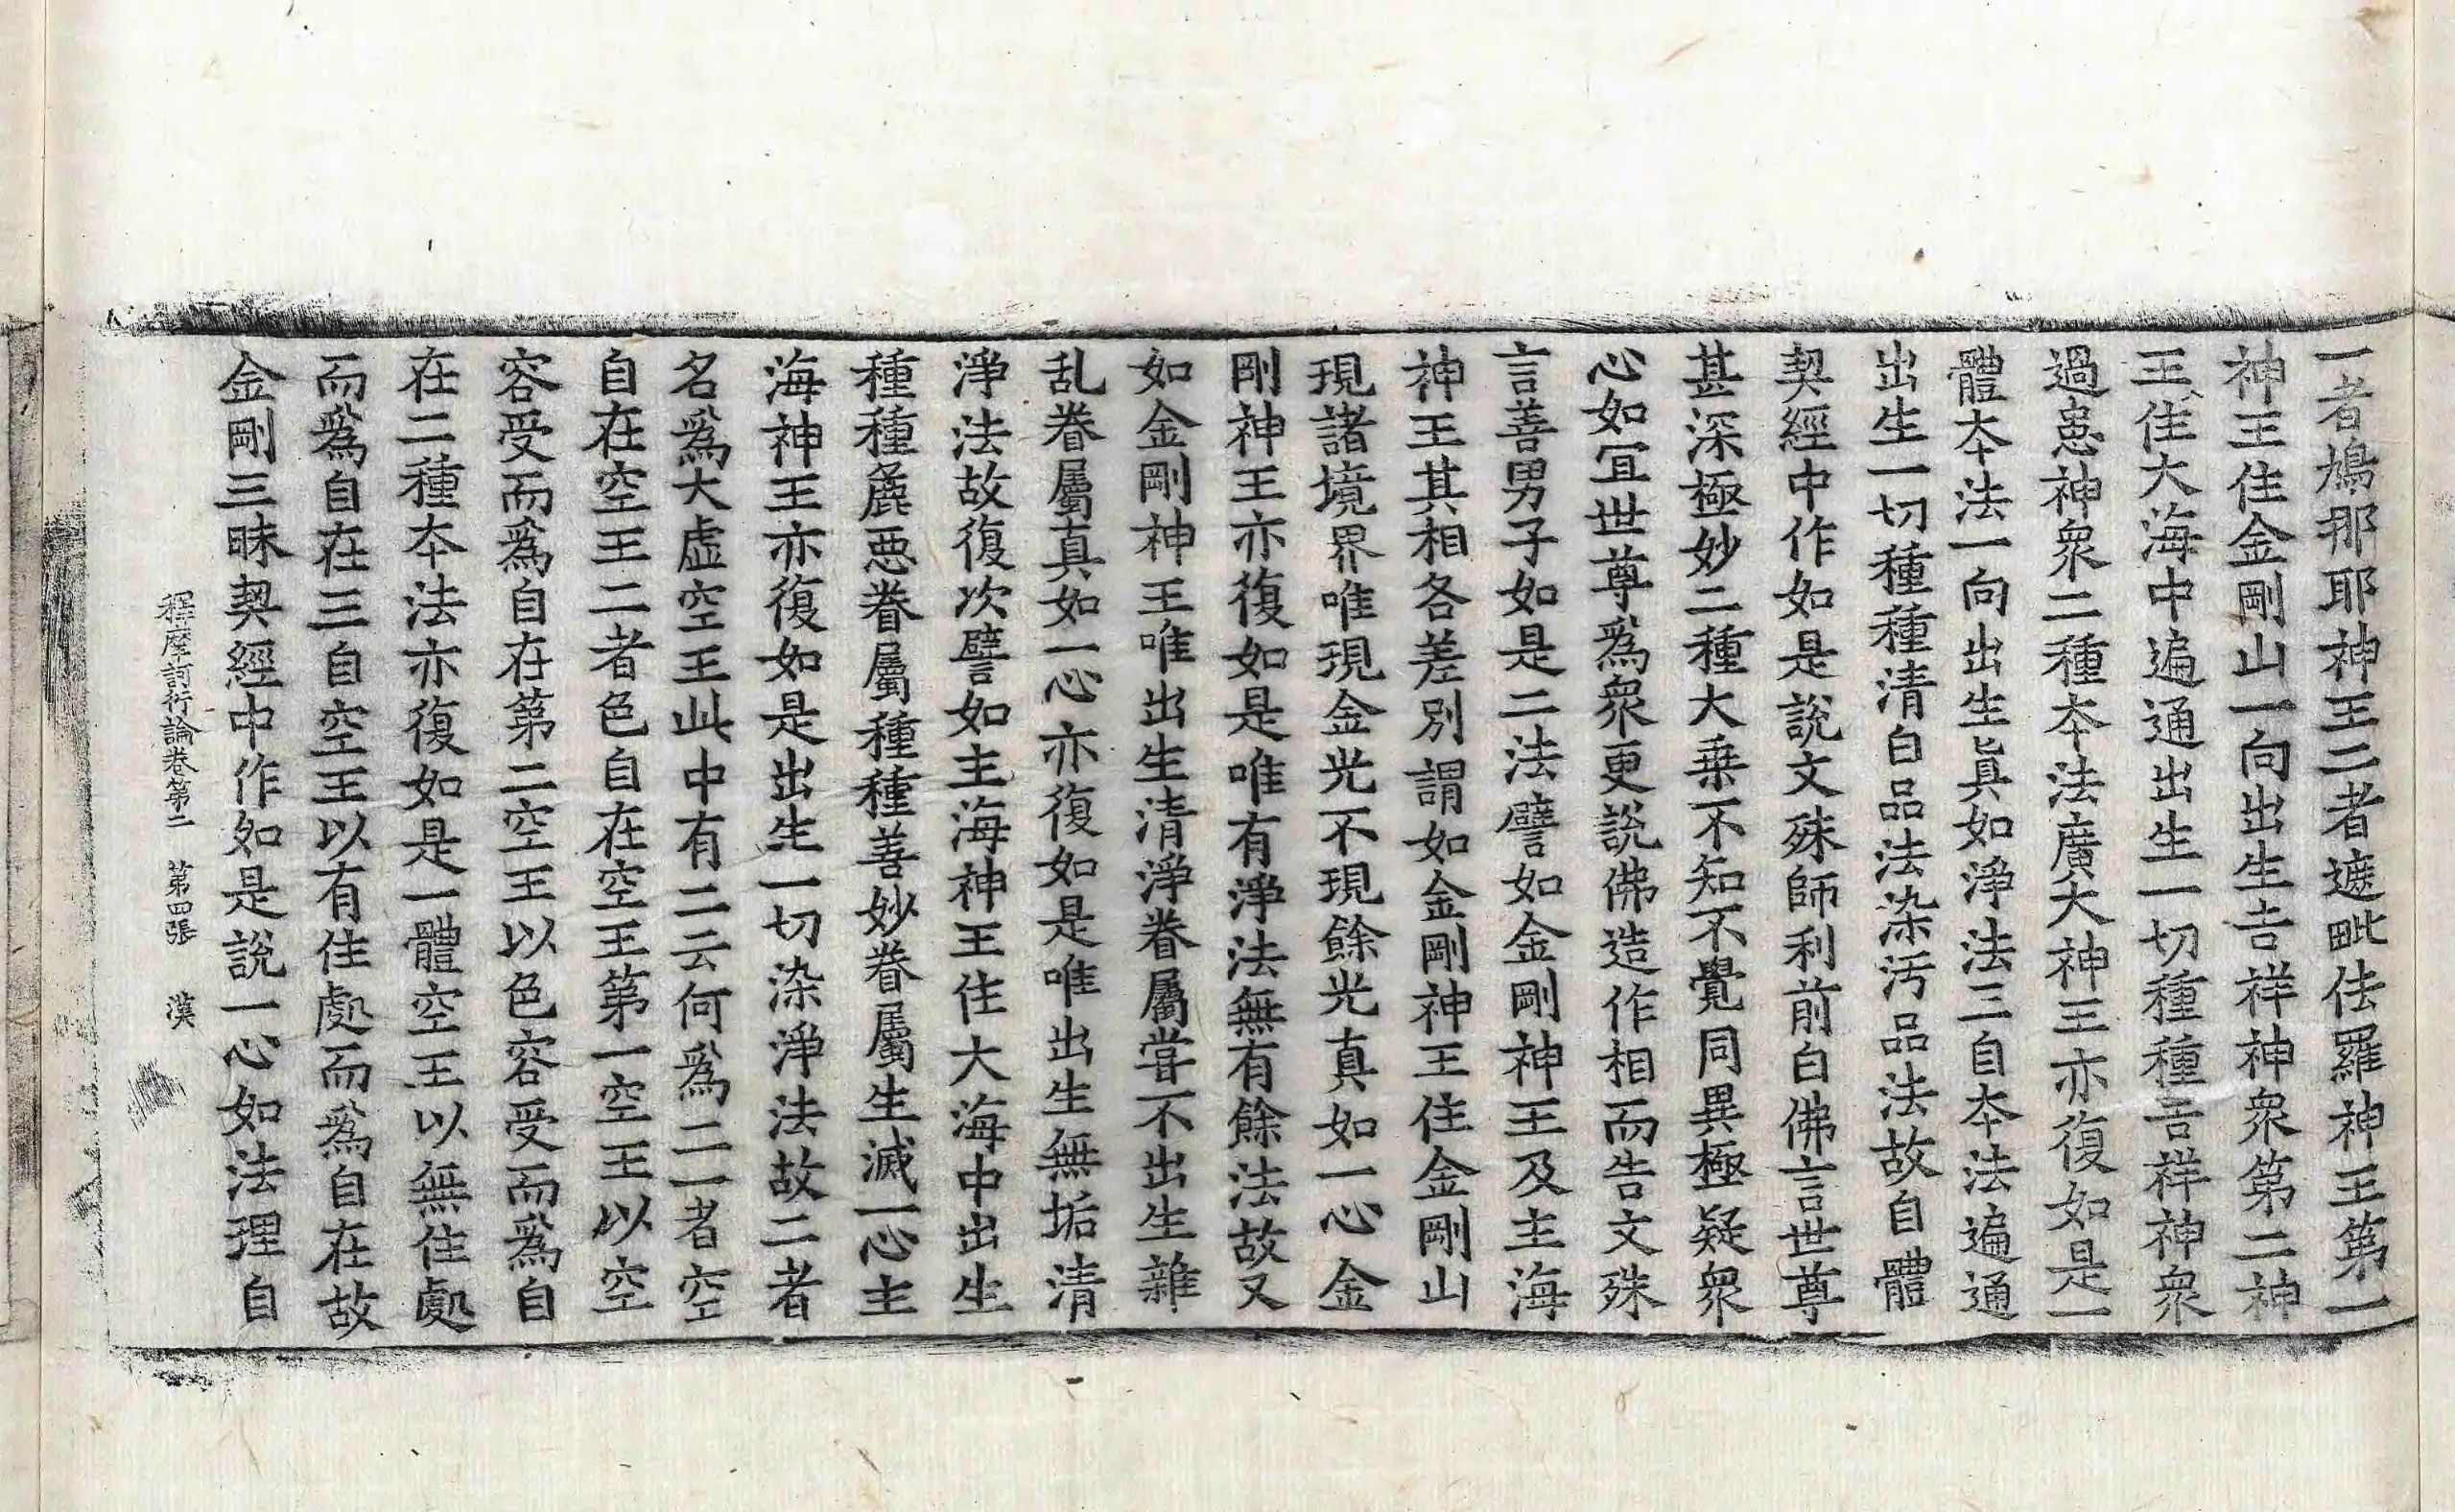 一者鳩那耶神王二者遮毗佉羅神王第一
神王住金剛山一向出生吉祥神衆第二神
王住大海中遍通出生一切種種吉祥神衆
過患神衆二種本法廣大神王亦復如是一
體本法一向出生眞如淨法三自本法遍通
出生一切種種清白品法染汚品法故自體
契經中作如是說文殊師利前白佛言世尊
甚深極妙二種大乗不知不覺同異極疑衆
心如冝世尊爲衆更說佛造作相而告文殊
言善男子如是二法譬如金剛神王及主海
神王其相各差別謂如金剛神王住金剛山
現諸境界唯現金光不現餘光真如一心金
剛神王亦復如是唯有淨法無有餘法故又
如金剛神王唯出生清淨眷屬嘗不出生雜
乱眷屬真如一心亦復如是唯出生無垢清
淨法故復次譬如主海神王住大海中出生
種種麁惡眷屬種種善妙眷屬生滅一心主
海神王亦復如是出生一切染淨法故二者
名爲大虛空王此中有二云何爲二一者空
自在空王二者色自在空王第一空王以空
容受而爲自在第二空王以色容受而爲自
在二種本法亦復如是一體空王以無住處
而爲自在三自空王以有住處而爲自在故
金剛三昧契經中作如是說一心如法理自
釋摩訶衍論卷第二　第四張　漢